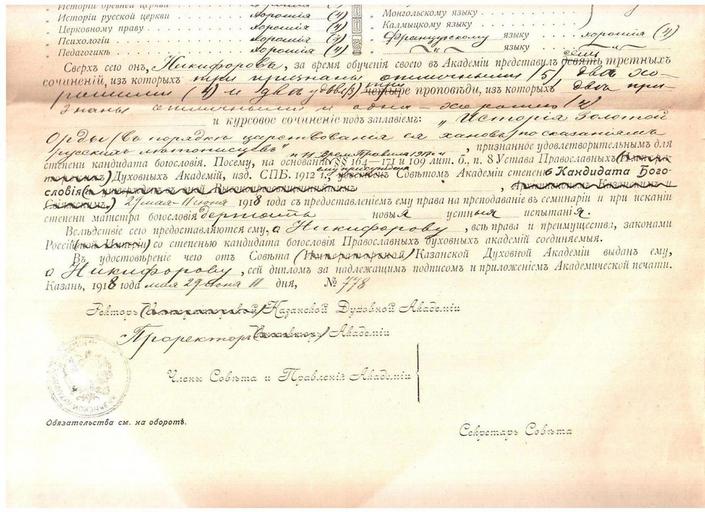 Исторіи древней церкви . . . . хорошія (4)
Исторіи русской церкви . . . хорошія (4) Монгольскому языку
Церковному праву . . . . . хорошія (4) Калмыцкому языку
Психологіи . . . . . хорошія (4) Французскому языку хорошія (4)
Педагогикѣ . . . . . хорошія (4) языку
Сверхъ сего онъ, Никифоровъ, за время обученія своего въ Академіи представилъ девять третныхъ
сочиненій, изъ которыхъ три признаны отличными (5) два хо-
рошими (4) и два проповѣди, изъ которыхъ два при-
знаны отличными и одна - хорошею (4)
и курсовое сочиненіе подъ заглавіемъ: „Исторія Золотой
Орды (въ порядкѣ царствованія ея хановъ) по сказаніямъ
русскихъ лѣтописцевъ", признанное удовлетворительнымъ для
степени кандидата богословія. Посему, на основаніи §§ 164—171 и 109 лит. б., п. 8 Устава Православныхъ
Духовныхъ Академій, изд. СПБ. 1912 г., Совѣтомъ Академіи степени Кандидата Бого-
словія
29 мая - 11 іюня 1918 съ предоставленіемъ ему права на преподаваніе въ семинаріи и при исканіи
степени магистра богословія держать новыя устныя испытанія.
Вслѣдствіе сего предоставляются ему, а Никифорову, всѣ права и преимущества, законами
Россій со степенью кандидата богословія Православныхъ духовныхъ академій соединяемыя.
Въ удостовѣреніе чего отъ Совѣта (Императорской) Казанской Духовной Академіи выданъ ему,
а Никифорову, сей дипломъ за надлежащимъ подписомъ и приложеніемъ Академической печати.
Казань, 1918 года мая 29 іюня 11 дня, № 778
Ректоръ (Императорской) Казанской Духовной Академіи
Проректоръ Академіи
Члены Совѣта и Правленія Академіи
Обязательства см. на оборотѣ.
Секретарь Совѣта